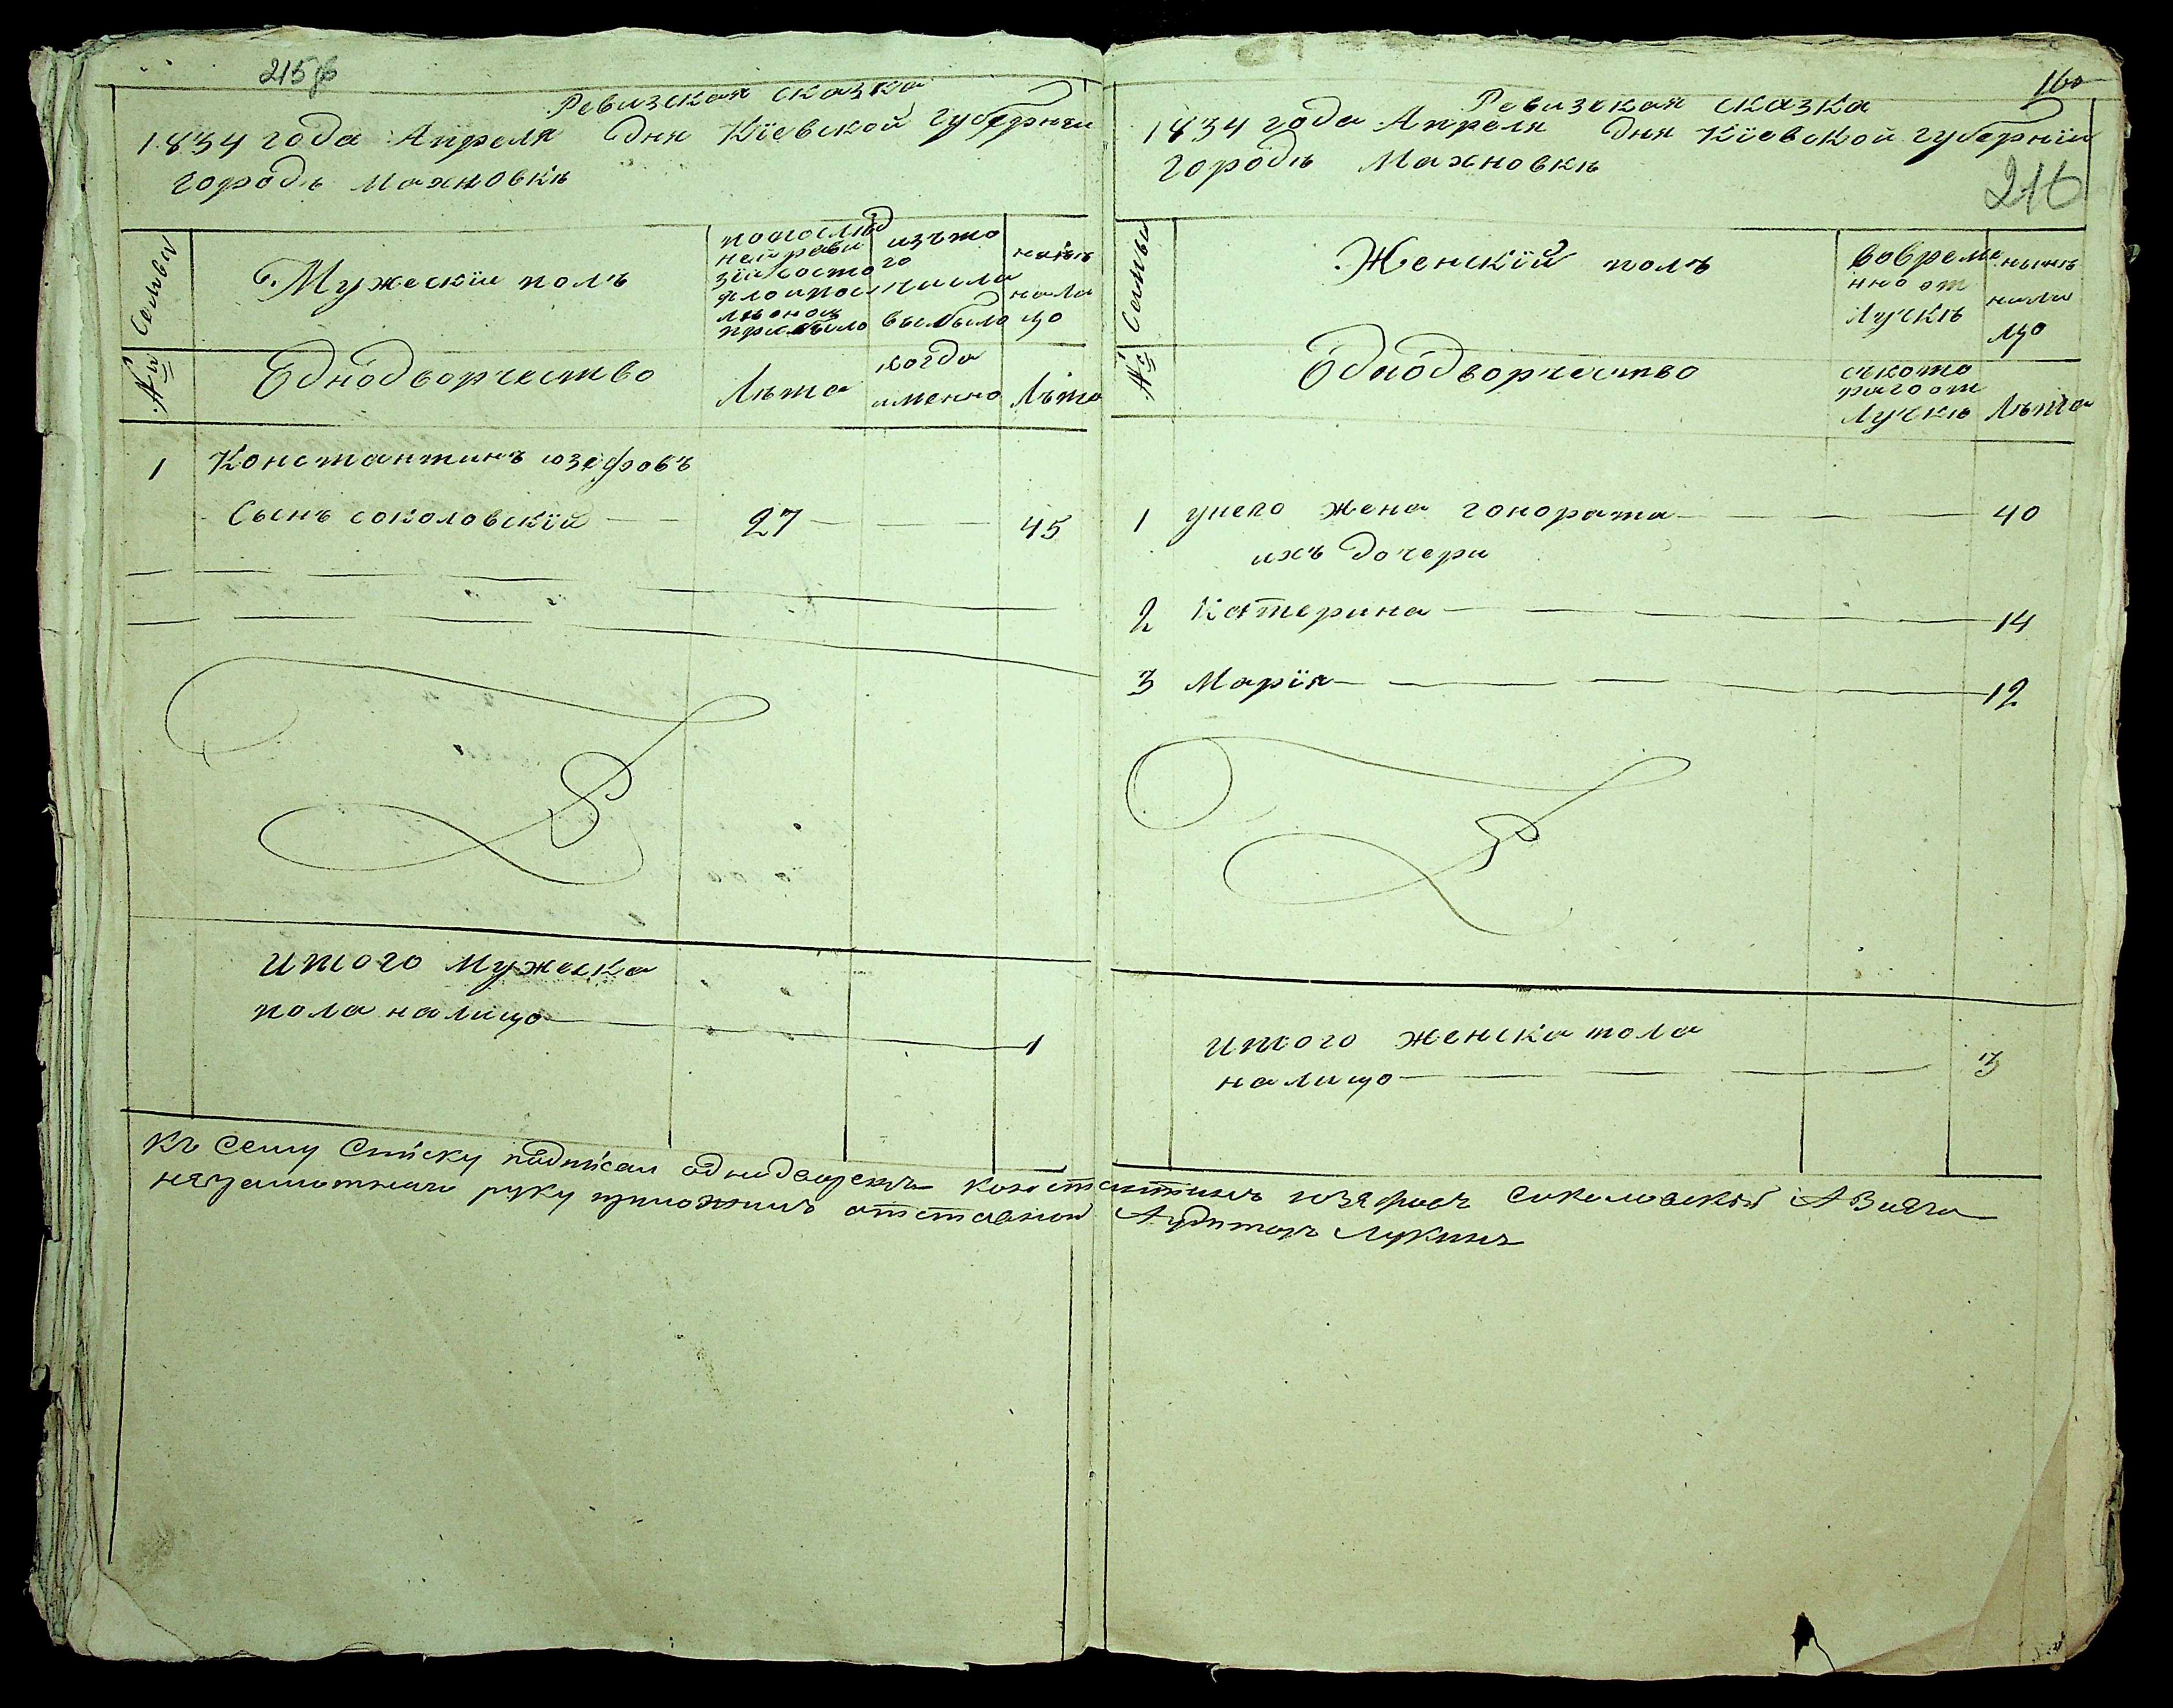 215
Ревизская сказка
1834 года Апреля дня Кіевской губерніи
городѣ Махновкѣ
Семьи
№
Мужескіи полъ
попослѣд
ней реви
зіи состо
яло и пос
лѣ оной
прибыло
изъ то
го
числа
выбыло
нынѣ
на ли
цо
Еднодворчество
Лѣта
когда
именно
Лѣта
1 Константинъ юзефовъ
Сынъ соколовскій 27 45
итого мужеска
пола налицо 1
160
Ревизская сказка
1834 года Апреля дня Кіевской губерніи
городѣ Махновкѣ
216
Семьи
№
Женскій полъ
вовреме
нно от
лучкѣ
нынѣ
нали
цо
Еднодворчество
съкото
раго от
лучкѣ
Лѣта
1 унего жена гонората 40
ихъ дочери
2 Катерина 14
3 Марія 12
итого женска пола
налицо 3
Къ Сему Списку подписал однодворецъ константинъ юзяфовъ Соколовскій А Вияго
неграмотнаго руку приложилъ отставной Аудиторъ Лукинъ